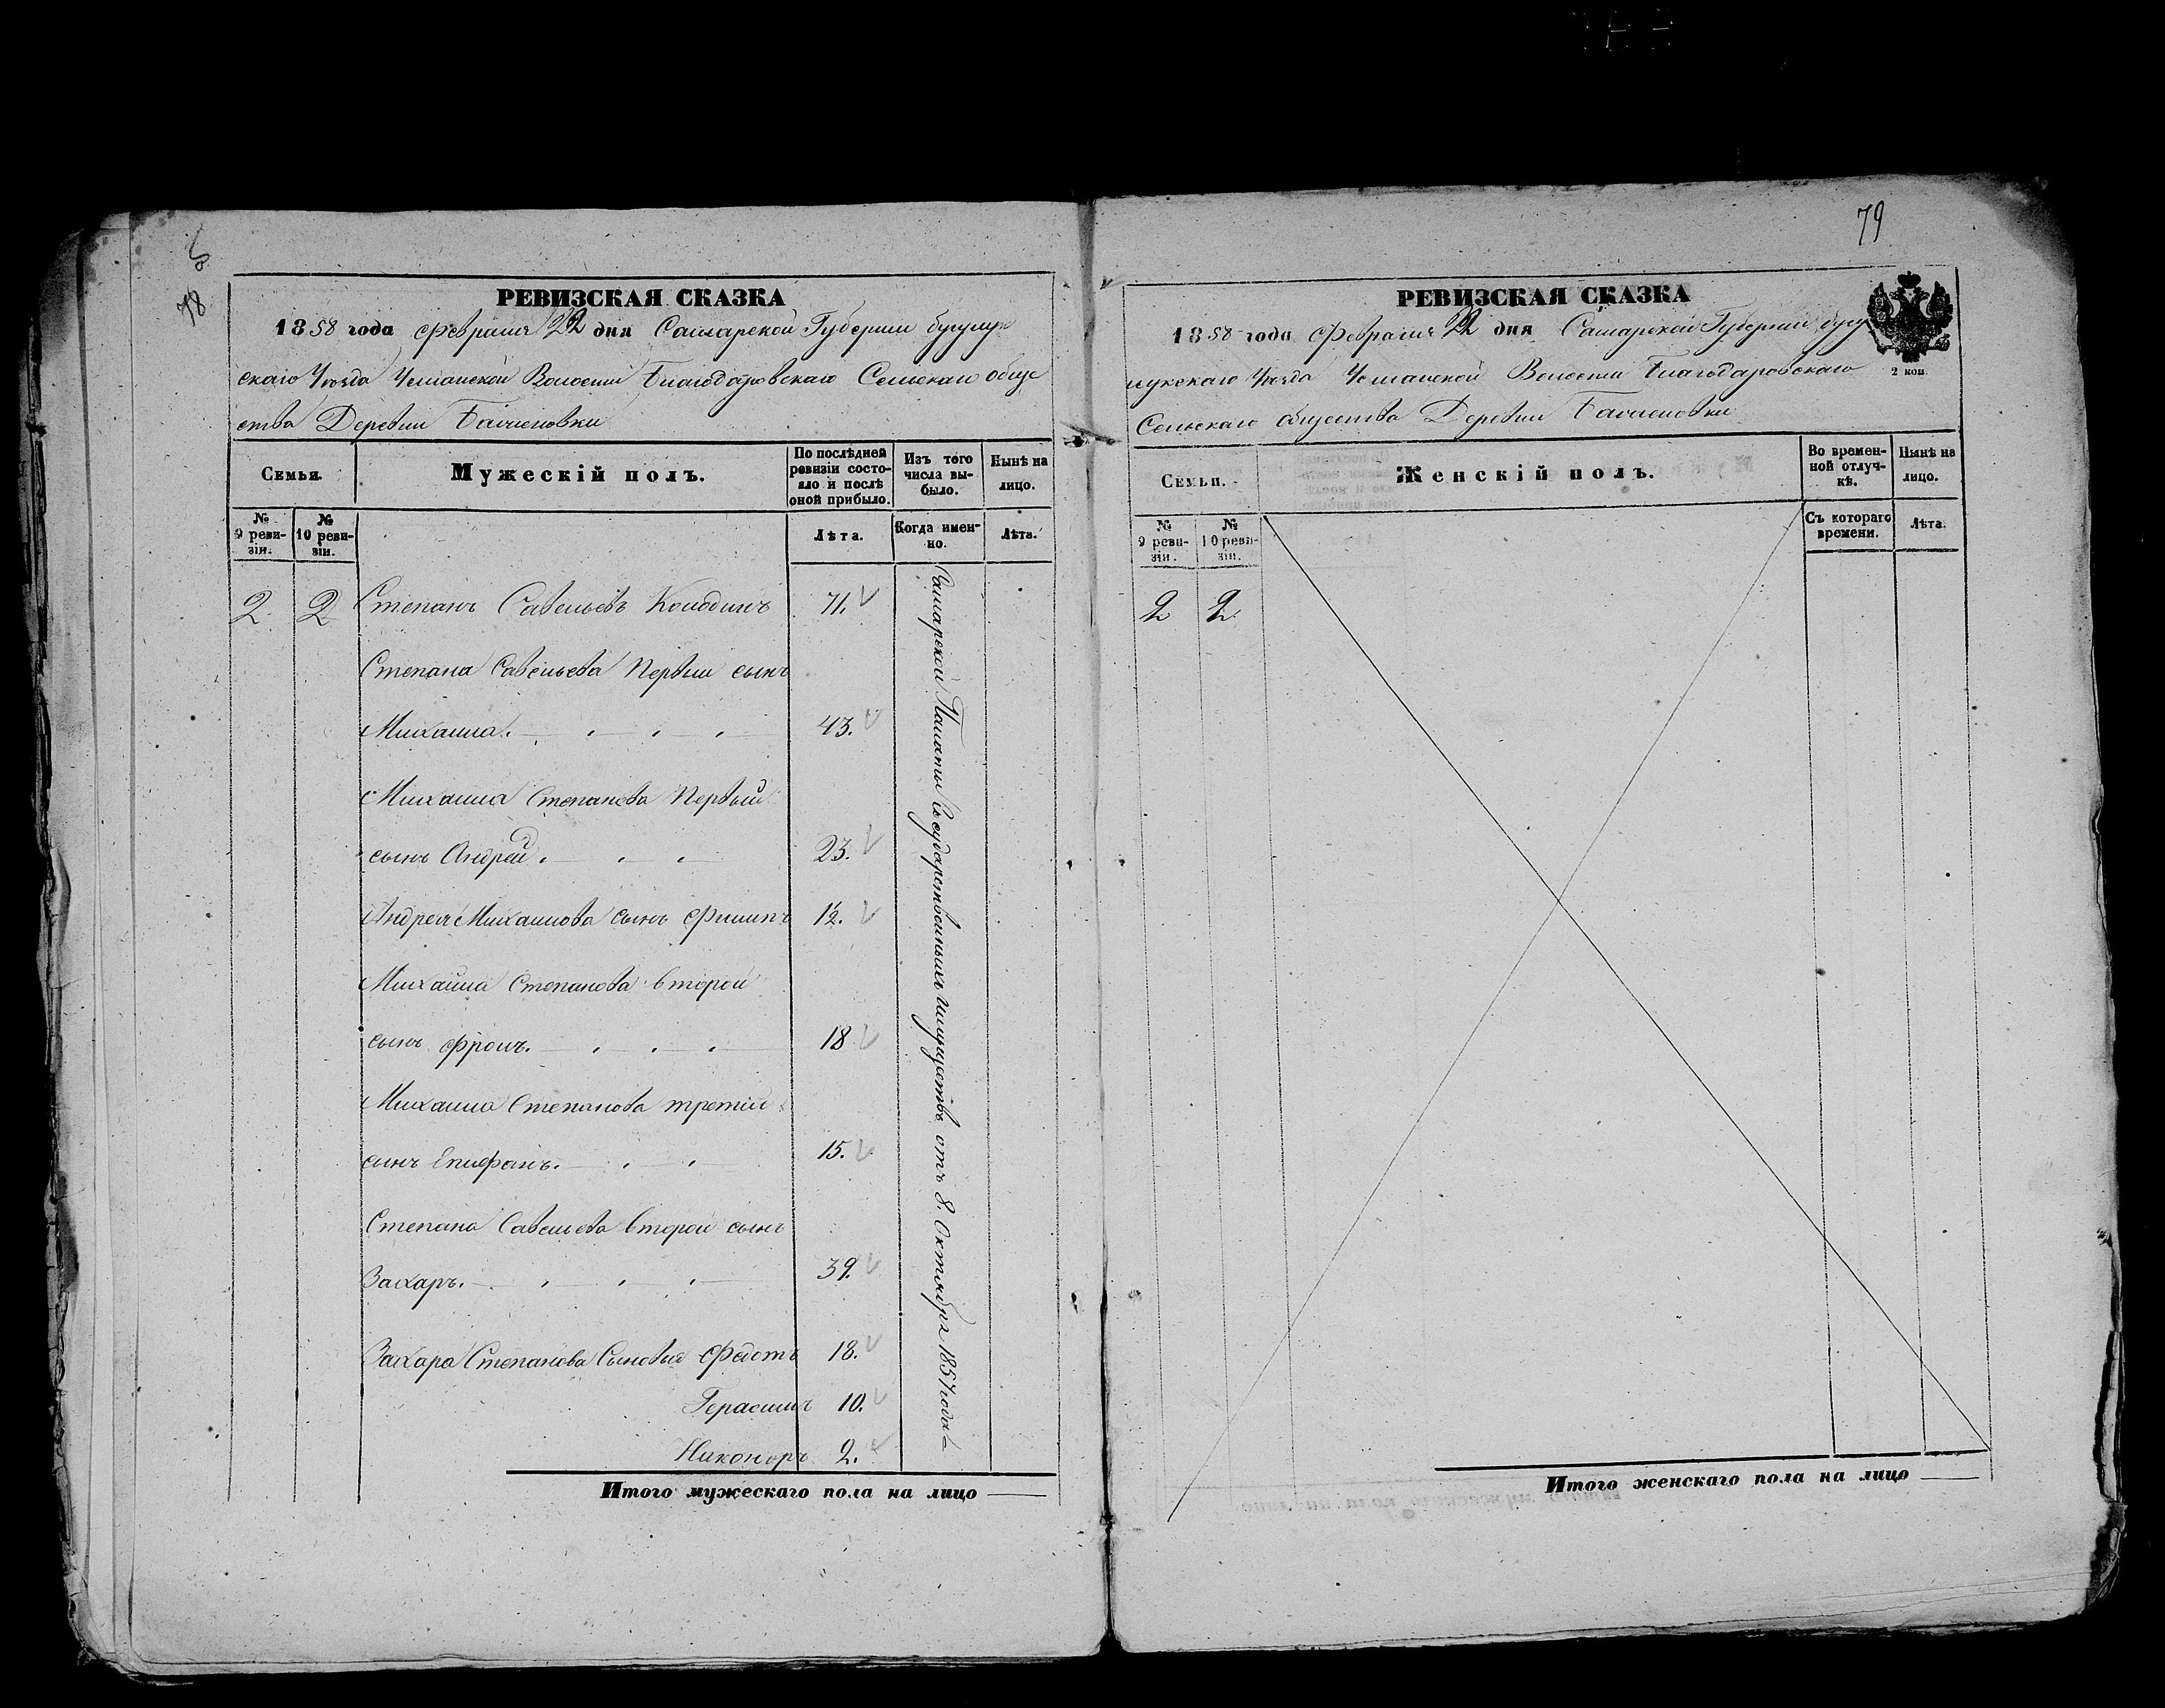 78
РЕВИЗСКАЯ СКАЗКА
1858 года Февраля 22 дня Самарской Губернии бугульм
скаго Уезда Волости Благодаровскаго Сельскаго обще
ства Деревни
Семьи.
Мужескій полъ.
По послѣдней ревизіи состояло и послѣ оной прибыло.
Изъ того числа выбыло.
Нынѣ на лицо.
№ 9 ревизіи.
№ 10 ревизіи.
Лѣта.
Когда именно.
Лѣта.
2. 2 Степанъ Савельевъ 71.
Степана Савельева Первый сынъ
Михаила. 43.
Михаила Степанова Первый
сынъ Андрей. 23.
Андрея Михаилова сынъ Филипъ 12.
Михаила Степанова второй
сынъ Фролъ. 18
Михаила Степанова третий
сынъ Епифанъ. 15.
Степана Савельева второй сынъ
Захаръ. 39.
Захара Степанова Сыновья Федотъ 18.
Герасимъ 10.
Никоноръ 2.
Самарской Палаты Государственныхъ имуществъ отъ 8. Октября 1857 года
Итого мужескаго пола на лицо
79
РЕВИЗСКАЯ СКАЗКА
1858 года Февраля 22 дня Самарской Губернии бугу
Уезда Волости Благодаровскаго
Сельскаго общества Деревни
2 коп.
Семьи.
Женскій полъ.
Во временной отлучкѣ.
Нынѣ на лицо.
№ 9 ревизіи.
№ 10 ревизіи.
Съ котораго времени.
Лѣта.
2 2
Итого женскаго пола на лицо